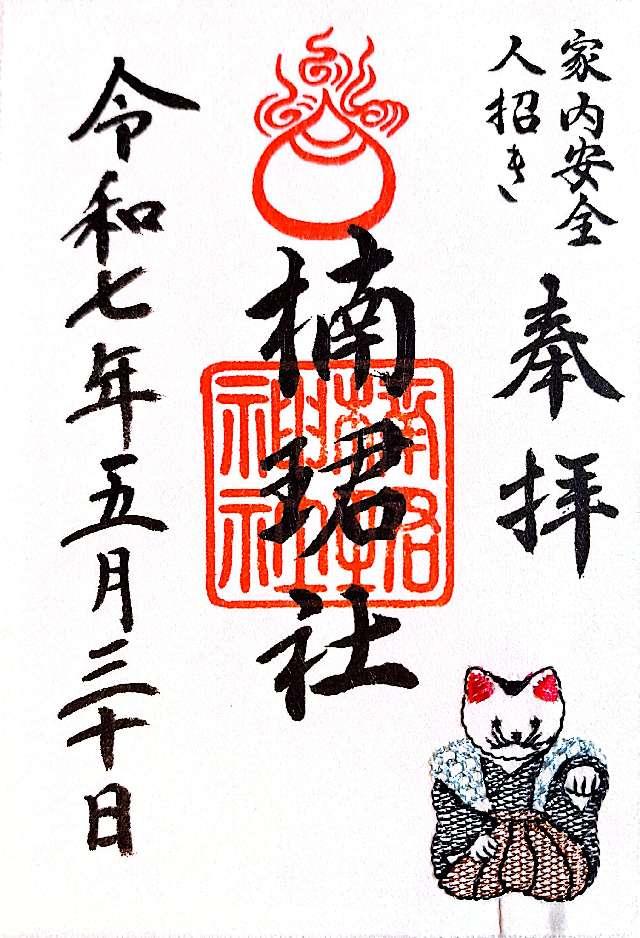 家内安全
人招き
奉拝
楠珺社
令和七年五月三十日